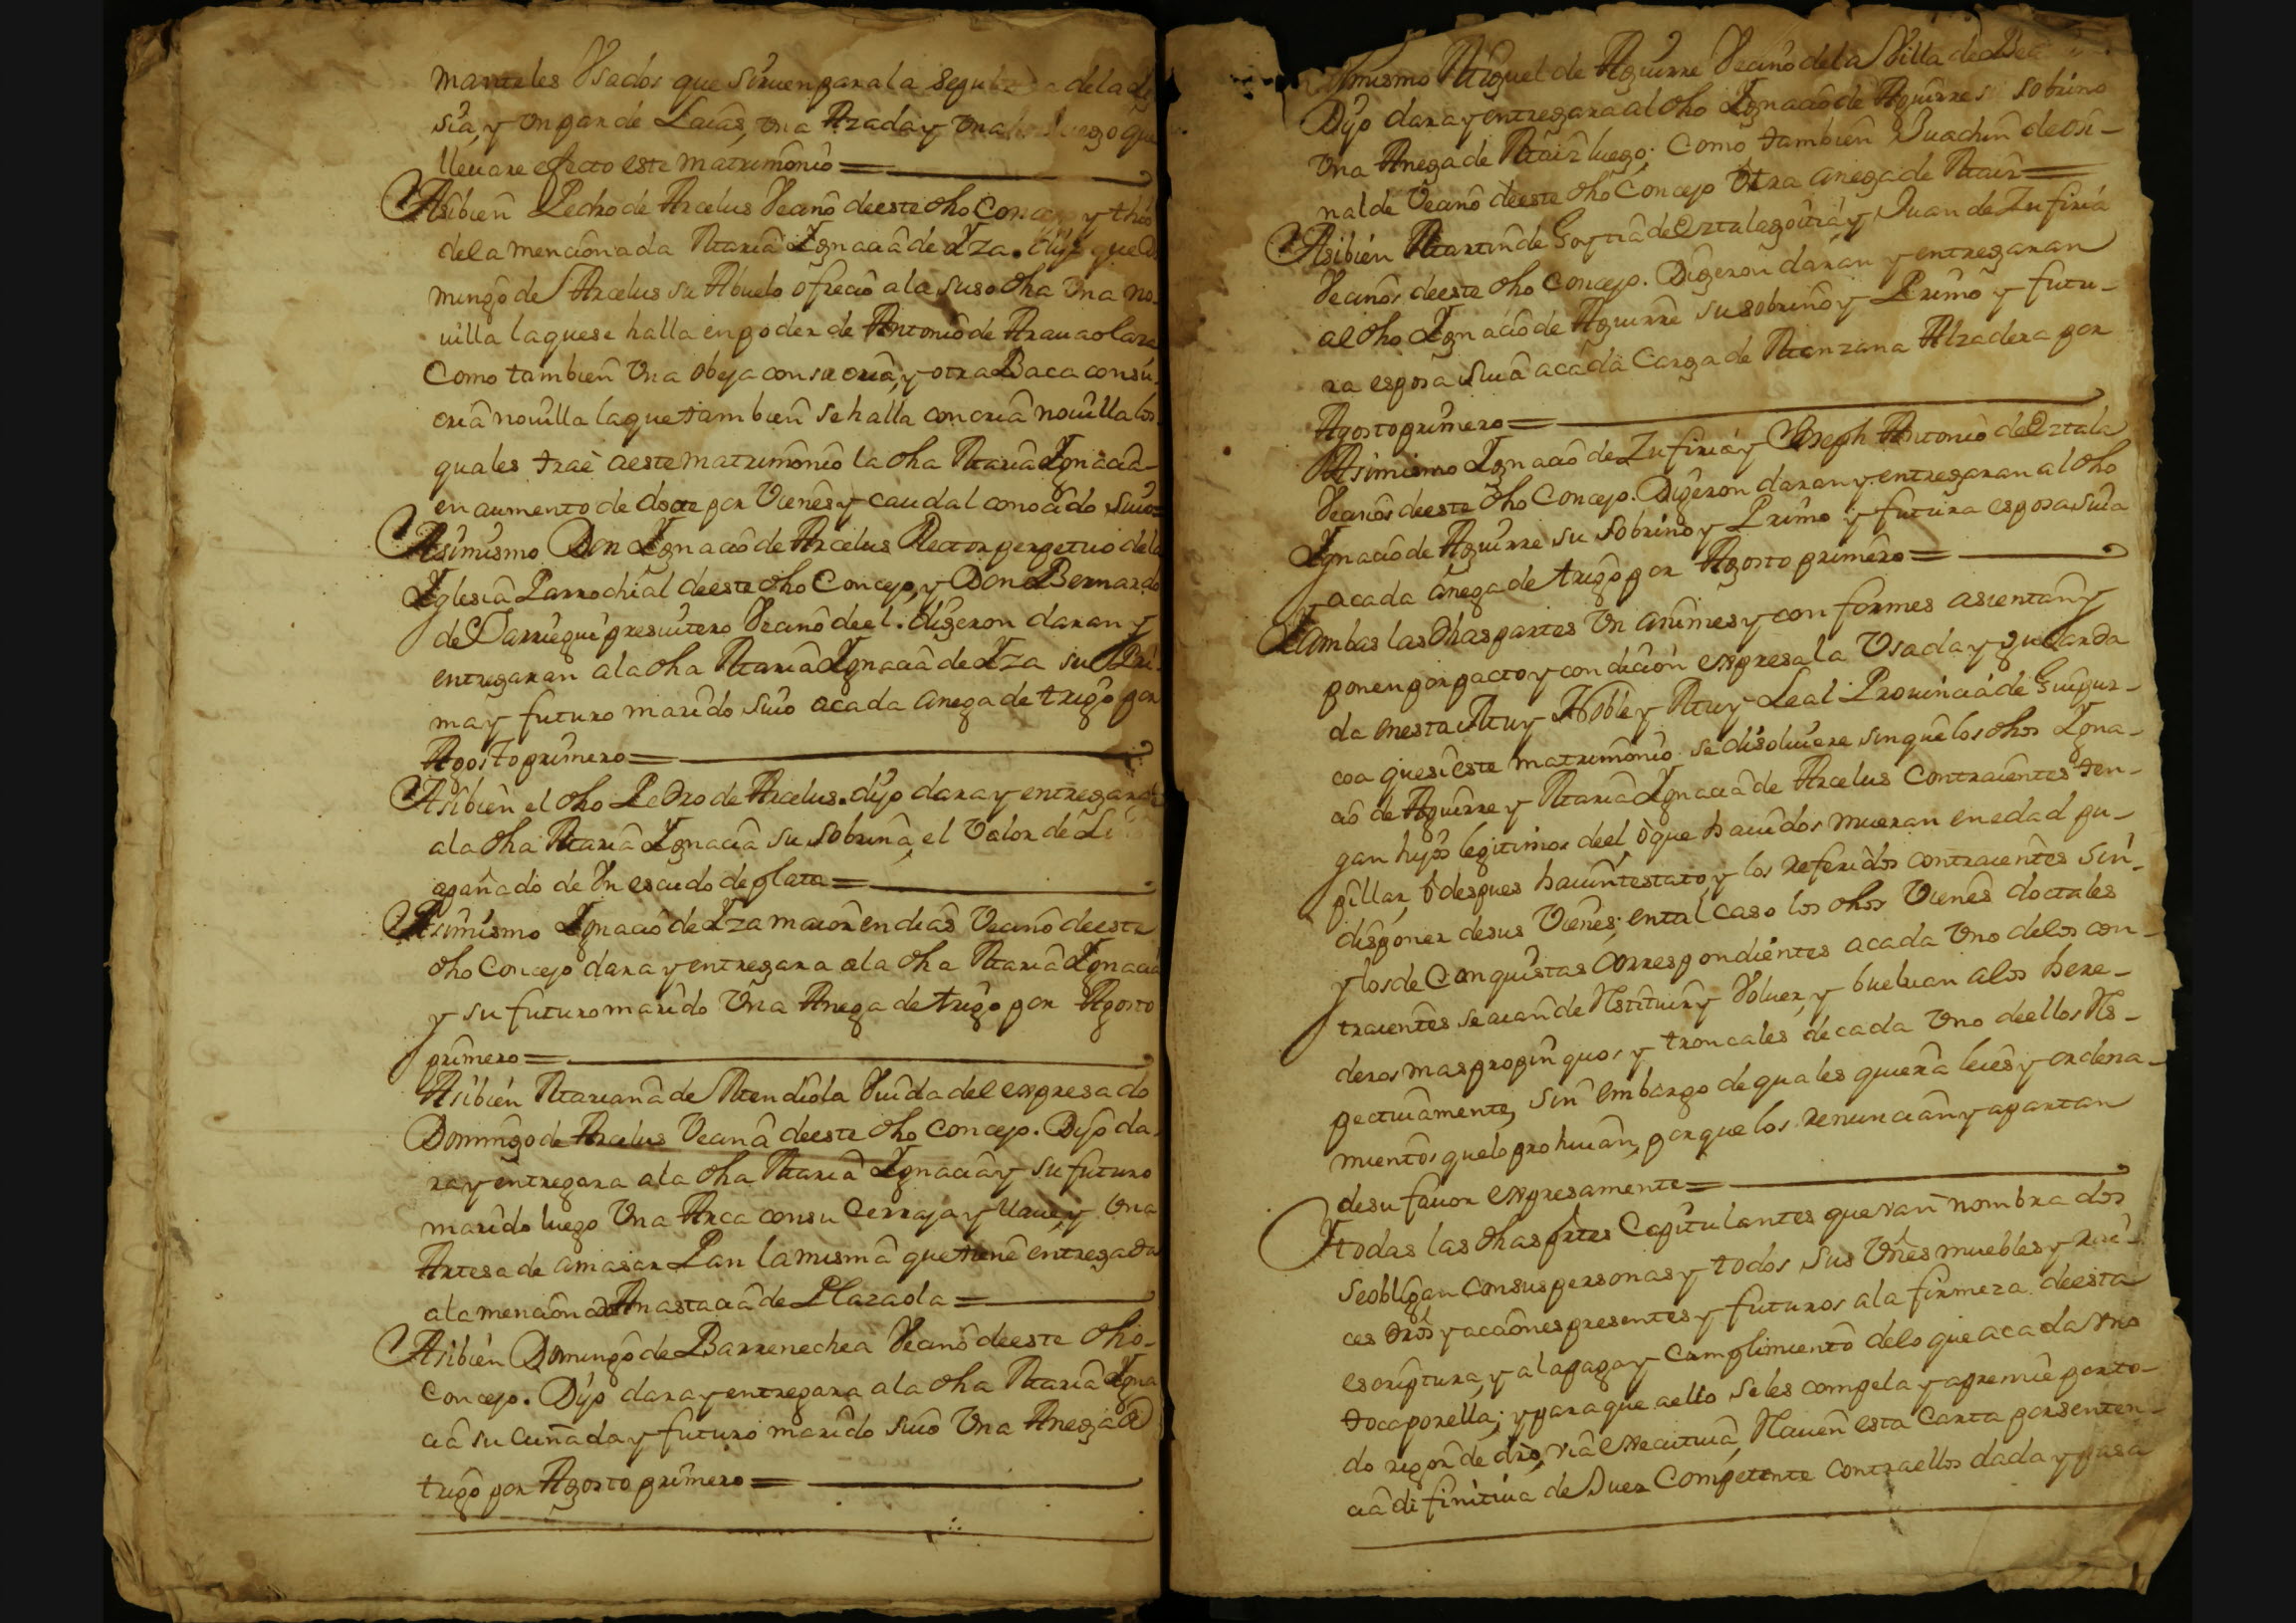 manteles Vsados que siruen para la sepultura de la
sia, y un par de Laias, una Azada y una luego que
lleuare efecto este matrimonio =
Asibien Pedro de Arcelus Vecino deeste dho Concejo y thio
dela mencionada Maria Ignacia de Yza. dijo que Do
mingo de Arcelus su Abuelo ofrecio ala suso dha Vna no-
uilla laquese halla en poder de Antonio de Arauaolaza
Como tambien Vna obeja con su cria, y otra Baca con su
cria nouilla laque tambien se halla con cria nouilla los
quales trae a este matrimonio la dha Maria Ignacia
en aumento de docte por Vienes y caudal conocido suio =
Asimismo Don Ignacio de Arcelus Rector perpetuo dela
Iglesia Parrochial deeste dho Concejo, y Don Bernardo
de Jarriegui presuitero Vecino deel. digeron daran y
entregaran ala dha Maria Ignacia de Yza su Pri-
ma y futuro marido suio acada anega de trigo por
Agosto primero =
Asibien el dho Pedro de Arcelus. dijo dara y entregara
ala dha Maria Ignacia su sobrina, el Valor de
apañado de Vn escudo de plata =
Asimismo Ignacio de Yza maior en dias Vecino deeste
dho Concejo dara y entregara ala dha Maria Ignacia
y su futuro marido Vna Anega de trigo por Agosto
primero =
Asibien Mariana de Mendiola Viuda del expresado
Domingo de Arcelus Vecina deeste dho Concejo. Dijo da-
ra y entregara ala dha Maria Ignacia y su futuro
marido luego Vna Arca con su Cerraja y llaue, y Vna
Artesa de amasar Pan la misma que tiene entregada
ala mencionada Anastacia de Plazaola =
Asibien Domingo de Barrenechea Vecino deeste dho-
Concejo. Dijo dara y entregara ala dha Maria Igna
cia su cuñada y futuro marido suio Vna Anega de
trigo por Agosto primero =
Asimismo Miguel de Aguirre Vecino dela Villa de
Dijo dara y entregara al dho Ignacio de Aguirre su sobrino
Vna Anega de Maiz luego; Como tambien Juachin de Osi-
nalde Vecino deeste dho Concejo Otra anega de Maiz =
Asibien Martin de Goytia de Oztalagoitia y Juan de Zufiria
Vecinos deeste dho Concejo. Digeron daran y entregaran
al dho Ignacio de Aguirre su sobrino y Primo y futu-
ra esposa suia acada Carga de Manzana Alzadera por
Agosto primero =
Asimismo Ignacio de Zufiria y Joseph Antonio de Oztala
Vecinos deeste dho Concejo. Digeron daran y entregaran al dho
Ignacio de Aguirre su sobrino y Primo y futura esposa suia
acada anega de trigo por Agosto primero =
Y ambas las dhas partes Vn animes y conformes asientan y
ponen por pacto y condicion expresa la Vsada y guardada
da en esta Muy Noble y Muy Leal Prouincia de Guipuz-
coa que si este matrimonio se disoluiere sin que los dhos Igna-
cio de Aguirre y Maria Ignacia de Arcelus Contraientes ten-
gan hijos legitimos deel o que hauidos mueran en edad pu-
pillar, o despues hauintestato y los referidos contraientes sin
disponer de sus Vienes; en tal caso los dhos Vienes doctales
y los de Conquistas Correspondientes acada Vno delos con-
traientes se aian de Restituir y Voluer, y bueluan alos here-
deros mas propinquos y troncales de cada Vno deellos Res-
pectiuamente, sin embargo de quales quiera leies y ordena-
mientos que lo prohiuan, porque los renuncian y apartan
de su fauor expresamente =
Y todas las dhas ptes Capitulantes que van nombrados
se obligan con sus personas y todos sus Vnes muebles y rai-
ces dros y acciones presentes y futuros ala firmeza deesta
escriptura, y ala paga y Cumplimiento delo que acada Vno
toca por ella; y para que aello seles compela y apremie por to-
do rigor de dro, via executiua, Rauen esta Carta por senten-
cia difinitiua de Juez Competente contra ellos dada y pasa